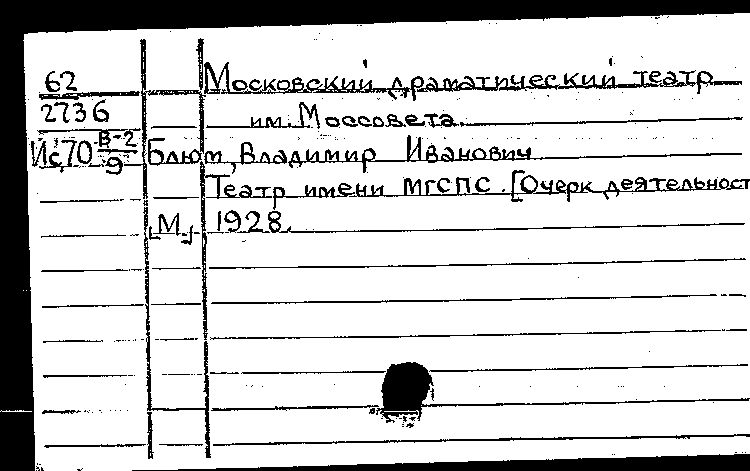 62 Московский драматический театр
2736 им. Моссовета.
Ис,70 В-2/9 Блюм, Владимир Иванович
Театр имени МГСПС. [Очерк деятельност
[М.], 1928.